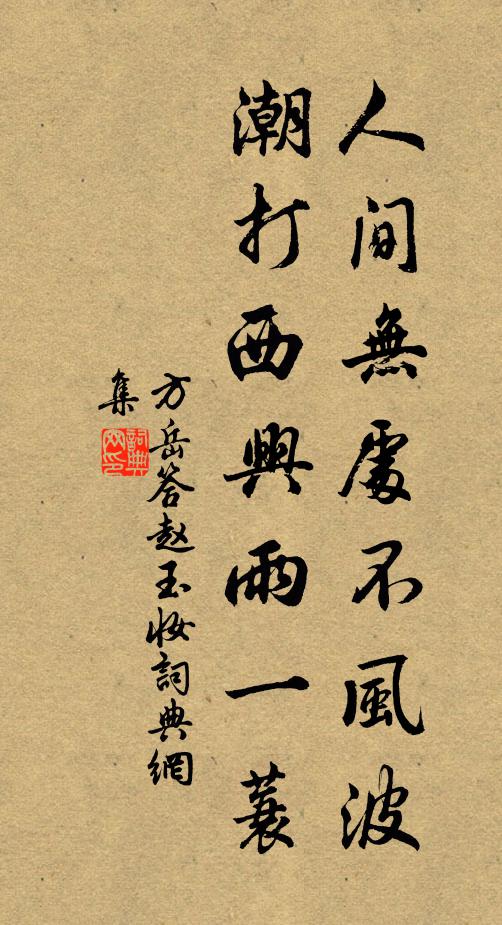 人間無處不風波
潮打西興雨一蓑
方岳答赵玉妝詞典網
集
詞典网印